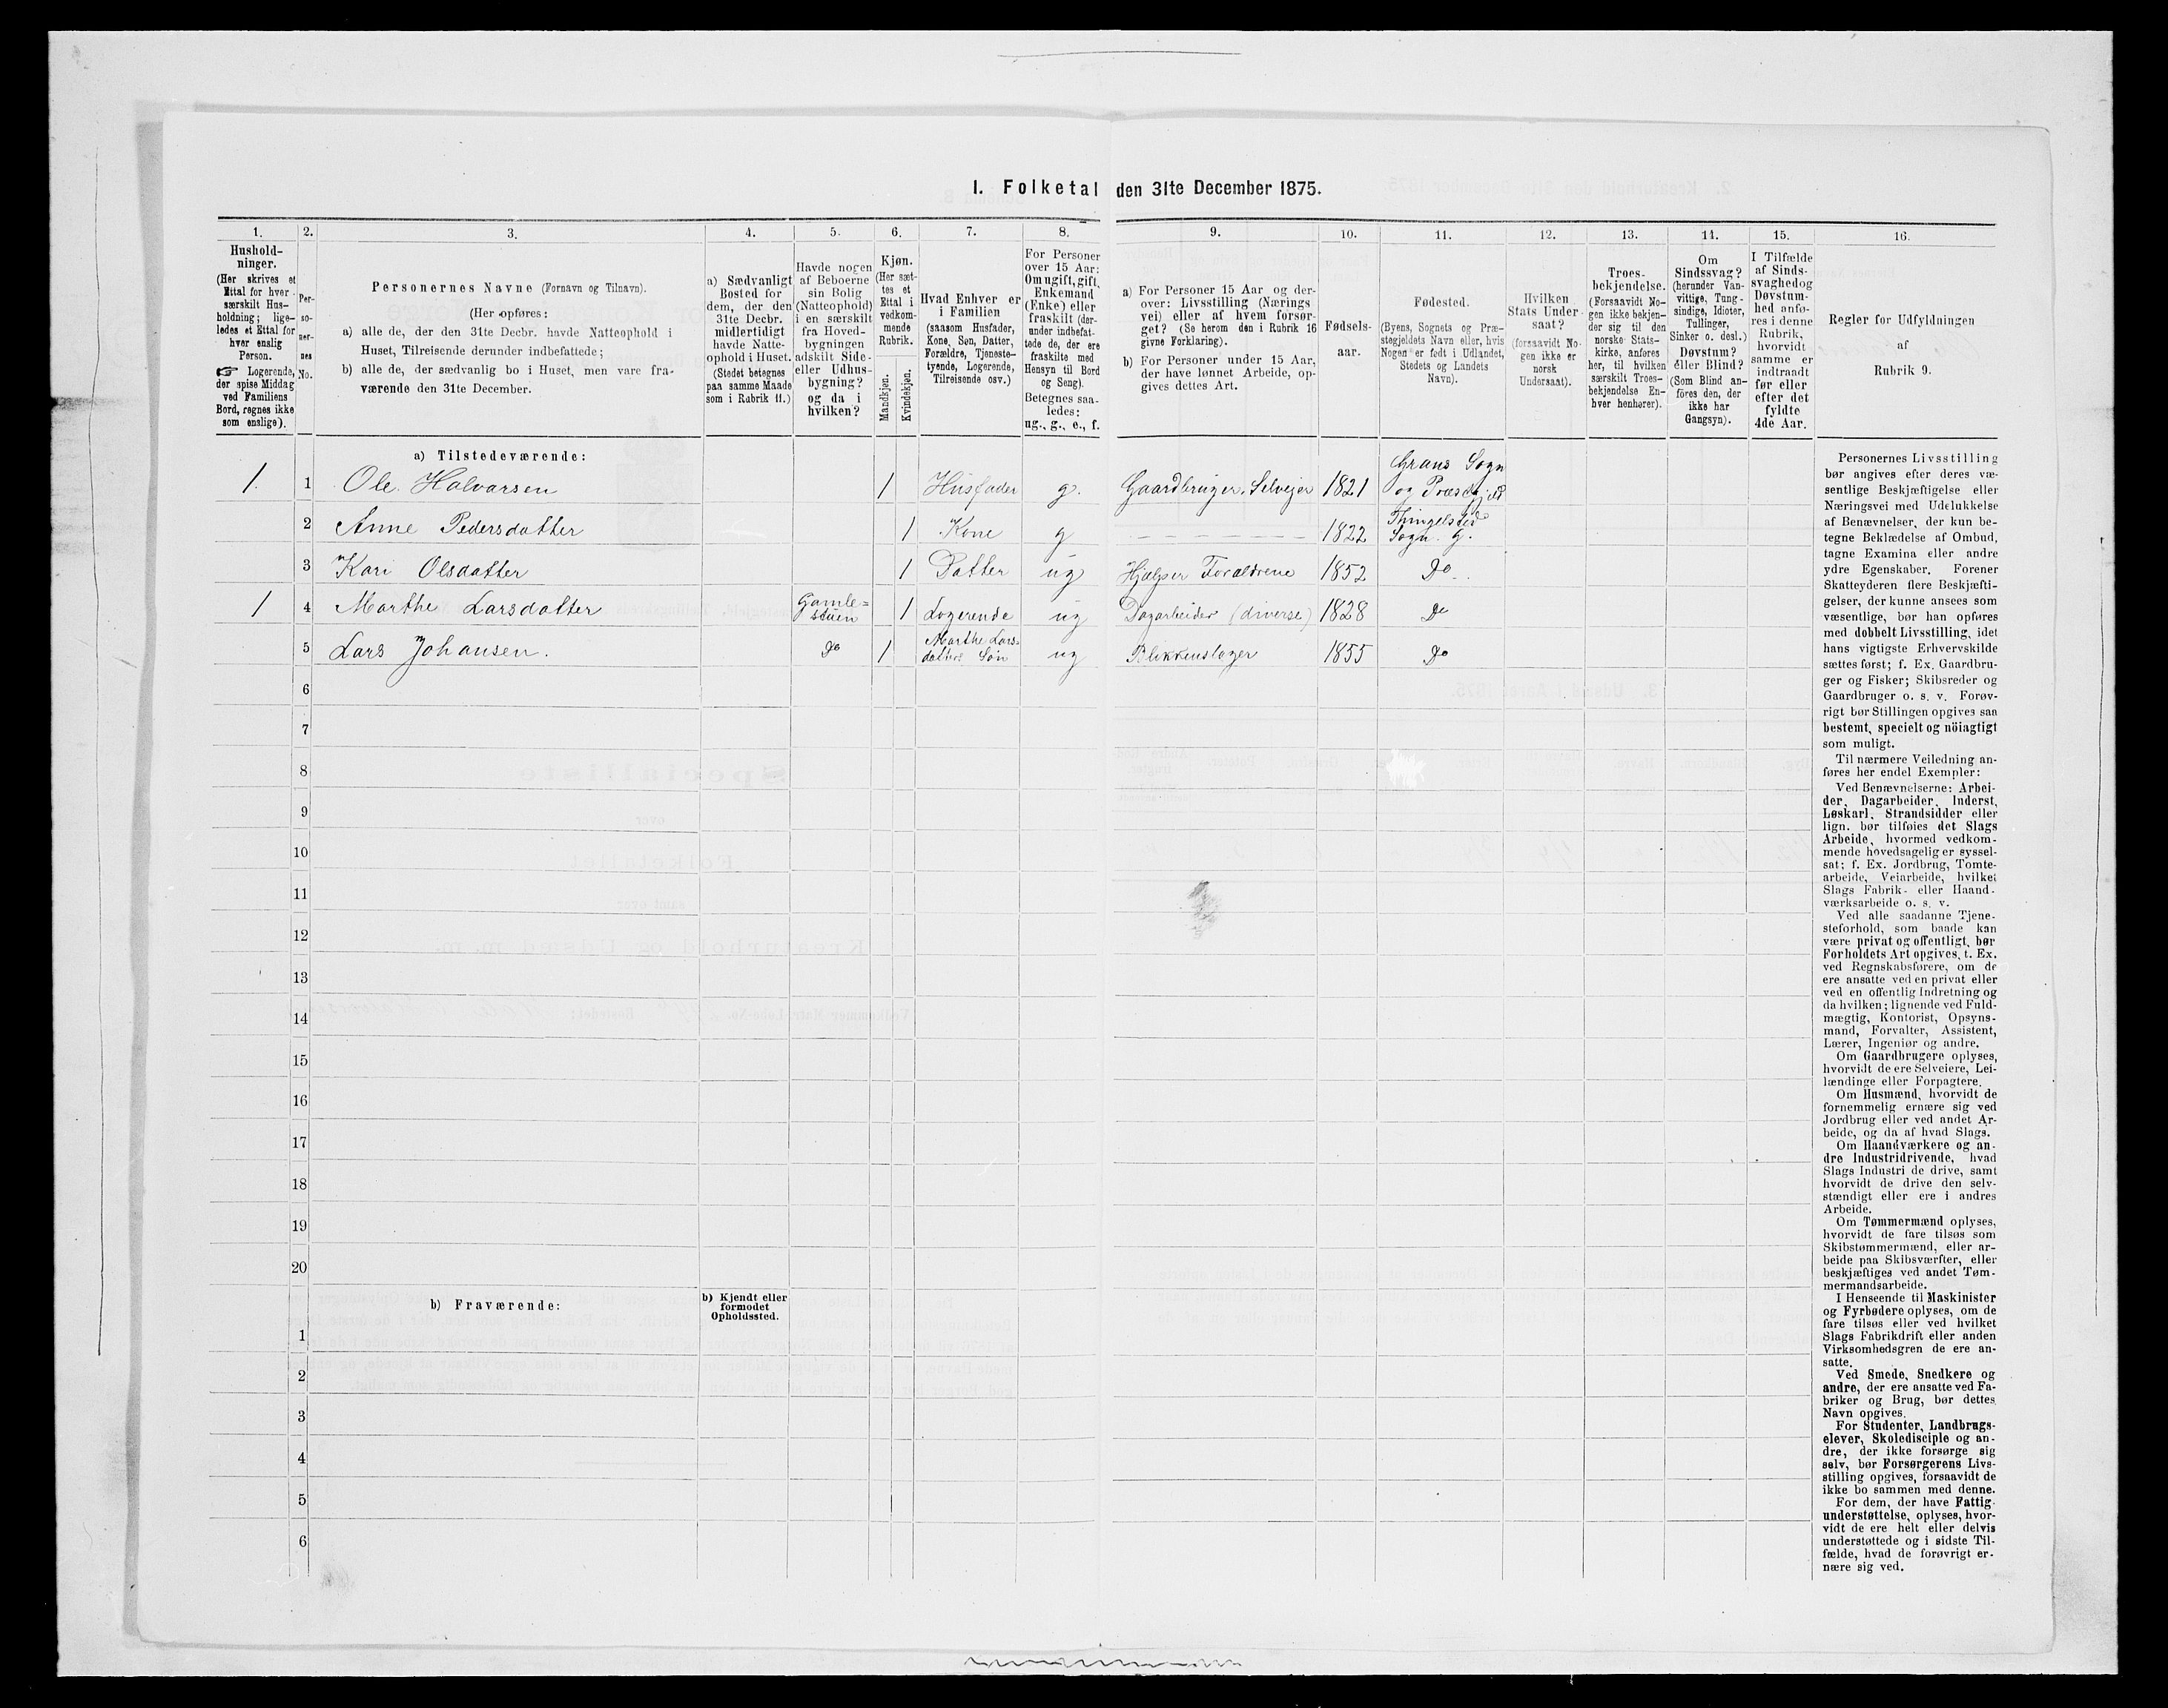 I. Folketal den 31te December 1875.
1.
Hushold-
ninger.
(Her skrives et
Ettal for hver
særskilt Hus-
holdning; lige-
ledes et Ettal for
hver enslig
Person.
☞ Logerende,
der spise Middag
ved Familiens
Bord, regnes ikke
som enslige).
2.
Per-
so-
ner-
nes
No.
3.
Personernes Navne (Fornavn og Tilnavn).
(Her opføres:
a) alle de, der den 31te Decbr. havde Natteophold i
Huset, Tilreisende derunder indbefattede;
b) alle de, der sædvanlig bo i Huset, men vare fra-
værende den 31te December.
4.
a) Sædvanligt
Bosted for
dem, der den
31te Decbr.
midlertidigt
havde Natte-
ophold i Huset.
(Stedet betegnes
paa samme Maade
som i Rubrik 11.)
5.
Havde nogen
af Beboerne
sin Bolig
(Natteophold)
i en særskilt
fra Hoved-
bygningen
adskilt Side-
eller Udhus-
bygning?
og da i
hvilken?
6.
Kjøn.
(Her sæt-
tes et
Ettal i
vedkom-
mende
Rubrik.
Mandkjøn.
Kvindekjøn.
7.
Hvad Enhver er
i Familien
(saasom Husfader,
Kone, Søn, Datter,
Forældre, Tjeneste-
tyende, Logerende,
Tilreisende osv.)
8.
For Personer
over 15 Aar:
Om ugift, gift,
Enkemand
(Enke) eller
fraskilt (der-
under indbefat-
tede de, der ere
fraskilte med
Hensyn til Bord
og Seng).
Betegnes saa-
ledes:
ug., g., e., f.
9.
a) For Personer 15 Aar og der-
over: Livsstilling (Nærings
vei) eller af hvem forsør-
get? (Se herom den i Rubrik 16
givne Forklaring).
b) For Personer under 15 Aar,
der have lønnet Arbeide, op-
gives dettes Art.
10.
Fødsels-
aar.
11.
Fødested.
(Byens, Sognets og Præ-
stegjeldets Navn eller, hvis
Nogen er født i Udlandet,
Stedets og Landets
Navn).
12.
Hvilken
Stats Under
saat?
(forsaavidt No-
gen ikke er
norsk
Undersaat).
13.
Troes-
bekjendelse.
(Forsaavidt No-
gen ikke bekjen-
der sig til den
norske Stats-
kirke, anføres
her, til hvilken
særskilt Troes-
bekjendelse En-
hver henhører).
14.
Om
Sindssvag?
(herunder Van-
vittige, Tung-
sindige, Idioter,
Tullinger,
Sinker o. desl.)
Døvstum?
eller Blind?
(Som Blind an-
föres den, der
ikke har
Gangsyn).
15.
I Tilfælde
af Sinds-
svaghed og
Døvstum-
hed anfø-
res i denne
Rubrik,
hvorvidt
samme er
indtraadt
før eller
efter det
fyldte
4de Aar.
16.
Regler for Udfyldningen
af
Rubrik 9.
a) Tilstedeværende:
1. 1 Ole Halvarsen 1 Husfader g. Gaardbruger, Selvejer 1821 Grans Sogn
og Præstgjeld
2 Anne Pedersdatter 1 Kone g - - - - - 1822 Thingelsted
Sogn. G.
3 Kari Olsdatter 1 Datter ug Hjælper Forældrene 1852 Do
1 4 Marthe Larsdatter Gamle=
stuen 1 Logerende ug Dagarbeider (diverse) 1828 Do
5 Lars Johansen. Do 1 Marthe Lars-
datters Søn ug Blikkenslager 1855 Do
6
7
8
9
10
11
12
13
14
15
16
17
18
19
20
b) Fraværende:
b) Kjendt eller
formodet
Opholdssted.
1
2
3
4
5
6
Personernes Livsstilling
bør angives efter deres væ-
sentlige Beskjæftigelse eller
Næringsvei med Udelukkelse
af Benævnelser, der kun be-
tegne Beklædelse af Ombud,
tagne Examina eller andre
ydre Egenskaber. Forener
Skatteyderen flere Beskjæfti-
gelser, der kunne ansees som
væsentlige, bør han opføres
med dobbelt Livsstilling, idet
hans vigtigste Erhvervskilde
sættes først; f. Ex. Gaardbru-
ger og Fisker; Skibsreder og
Gaardbruger o. s. v. Forøv-
rigt bør Stillingen opgives saa
bestemt, specielt og nöiagtigt
som muligt.
Til nærmere Veiledning an-
føres her endel Exempler:
Ved Benævnelserne: Arbei-
der, Dagarbeider, Inderst,
Løskarl, Strandsidder eller
lign. bør tilføies det Slags
Arbeide, hvormed vedkom-
mende hovedsagelig er syssel-
sat; f. Ex. Jordbrug, Tomte-
arbeide, Veiarbeide, hvilket
Slags Fabrik- eller Haand-
værksarbeide o. s. v.
Ved alle saadanne Tjene-
steforhold, som baade kan
være privat og offentligt, bør
Forholdets Art opgives, t. Ex.
ved Regnskabsførere, om de
ere ansatte ved en privat eller
ved en offentlig Indretning og
da hvilken; lignende ved Fuld-
mægtig, Kontorist, Opsyns-
mand, Forvalter, Assistent,
Lærer, Ingeniør og andre.
Om Gaardbrugere oplyses,
hvorvidt de ere Selveiere, Lei-
lændinge eller Forpagtere.
Om Husmænd, hvorvidt de
fornemmelig ernære sig ved
Jordbrug eller ved andet Ar-
beide, og da af hvad Slags.
Om Haandværkere og an-
dre Industridrivende, hvad
Slags Industri de drive, samt
hvorvidt de drive den selv-
stændigt eller ere i andres
Arbeide.
Om Tømmermænd oplyses,
hvorvidt de fare tilsøs som
Skibstømmermænd, eller ar-
beide paa Skibsværfter, eller
beskjæftiges ved andet Tøm-
mermandsarbeide.
I Henseende til Maskinister
og Fyrbødere oplyses, om de
fare tilsøs eller ved hvilket
Slags Fabrikdrift eller anden
Virksomhedsgren de ere an-
satte.
Ved Smede, Snedkere og
andre, der ere ansatte ved Fa-
briker og Brug, bør dettes
Navn opgives.
For Studenter, Landbrugs-
elever, Skoledisciple og an-
dre, der ikke forsørge sig
selv, bør Forsørgerens Livs-
stilling opgives, forsaavidt de
ikke bo sammen med denne.
For dem, der have Fattig-
understøttelse, oplyses, hvor-
vidt de ere helt eller delvis
understøttede og i sidste Til-
fælde, hvad de forøvrigt er-
nære sig ved.